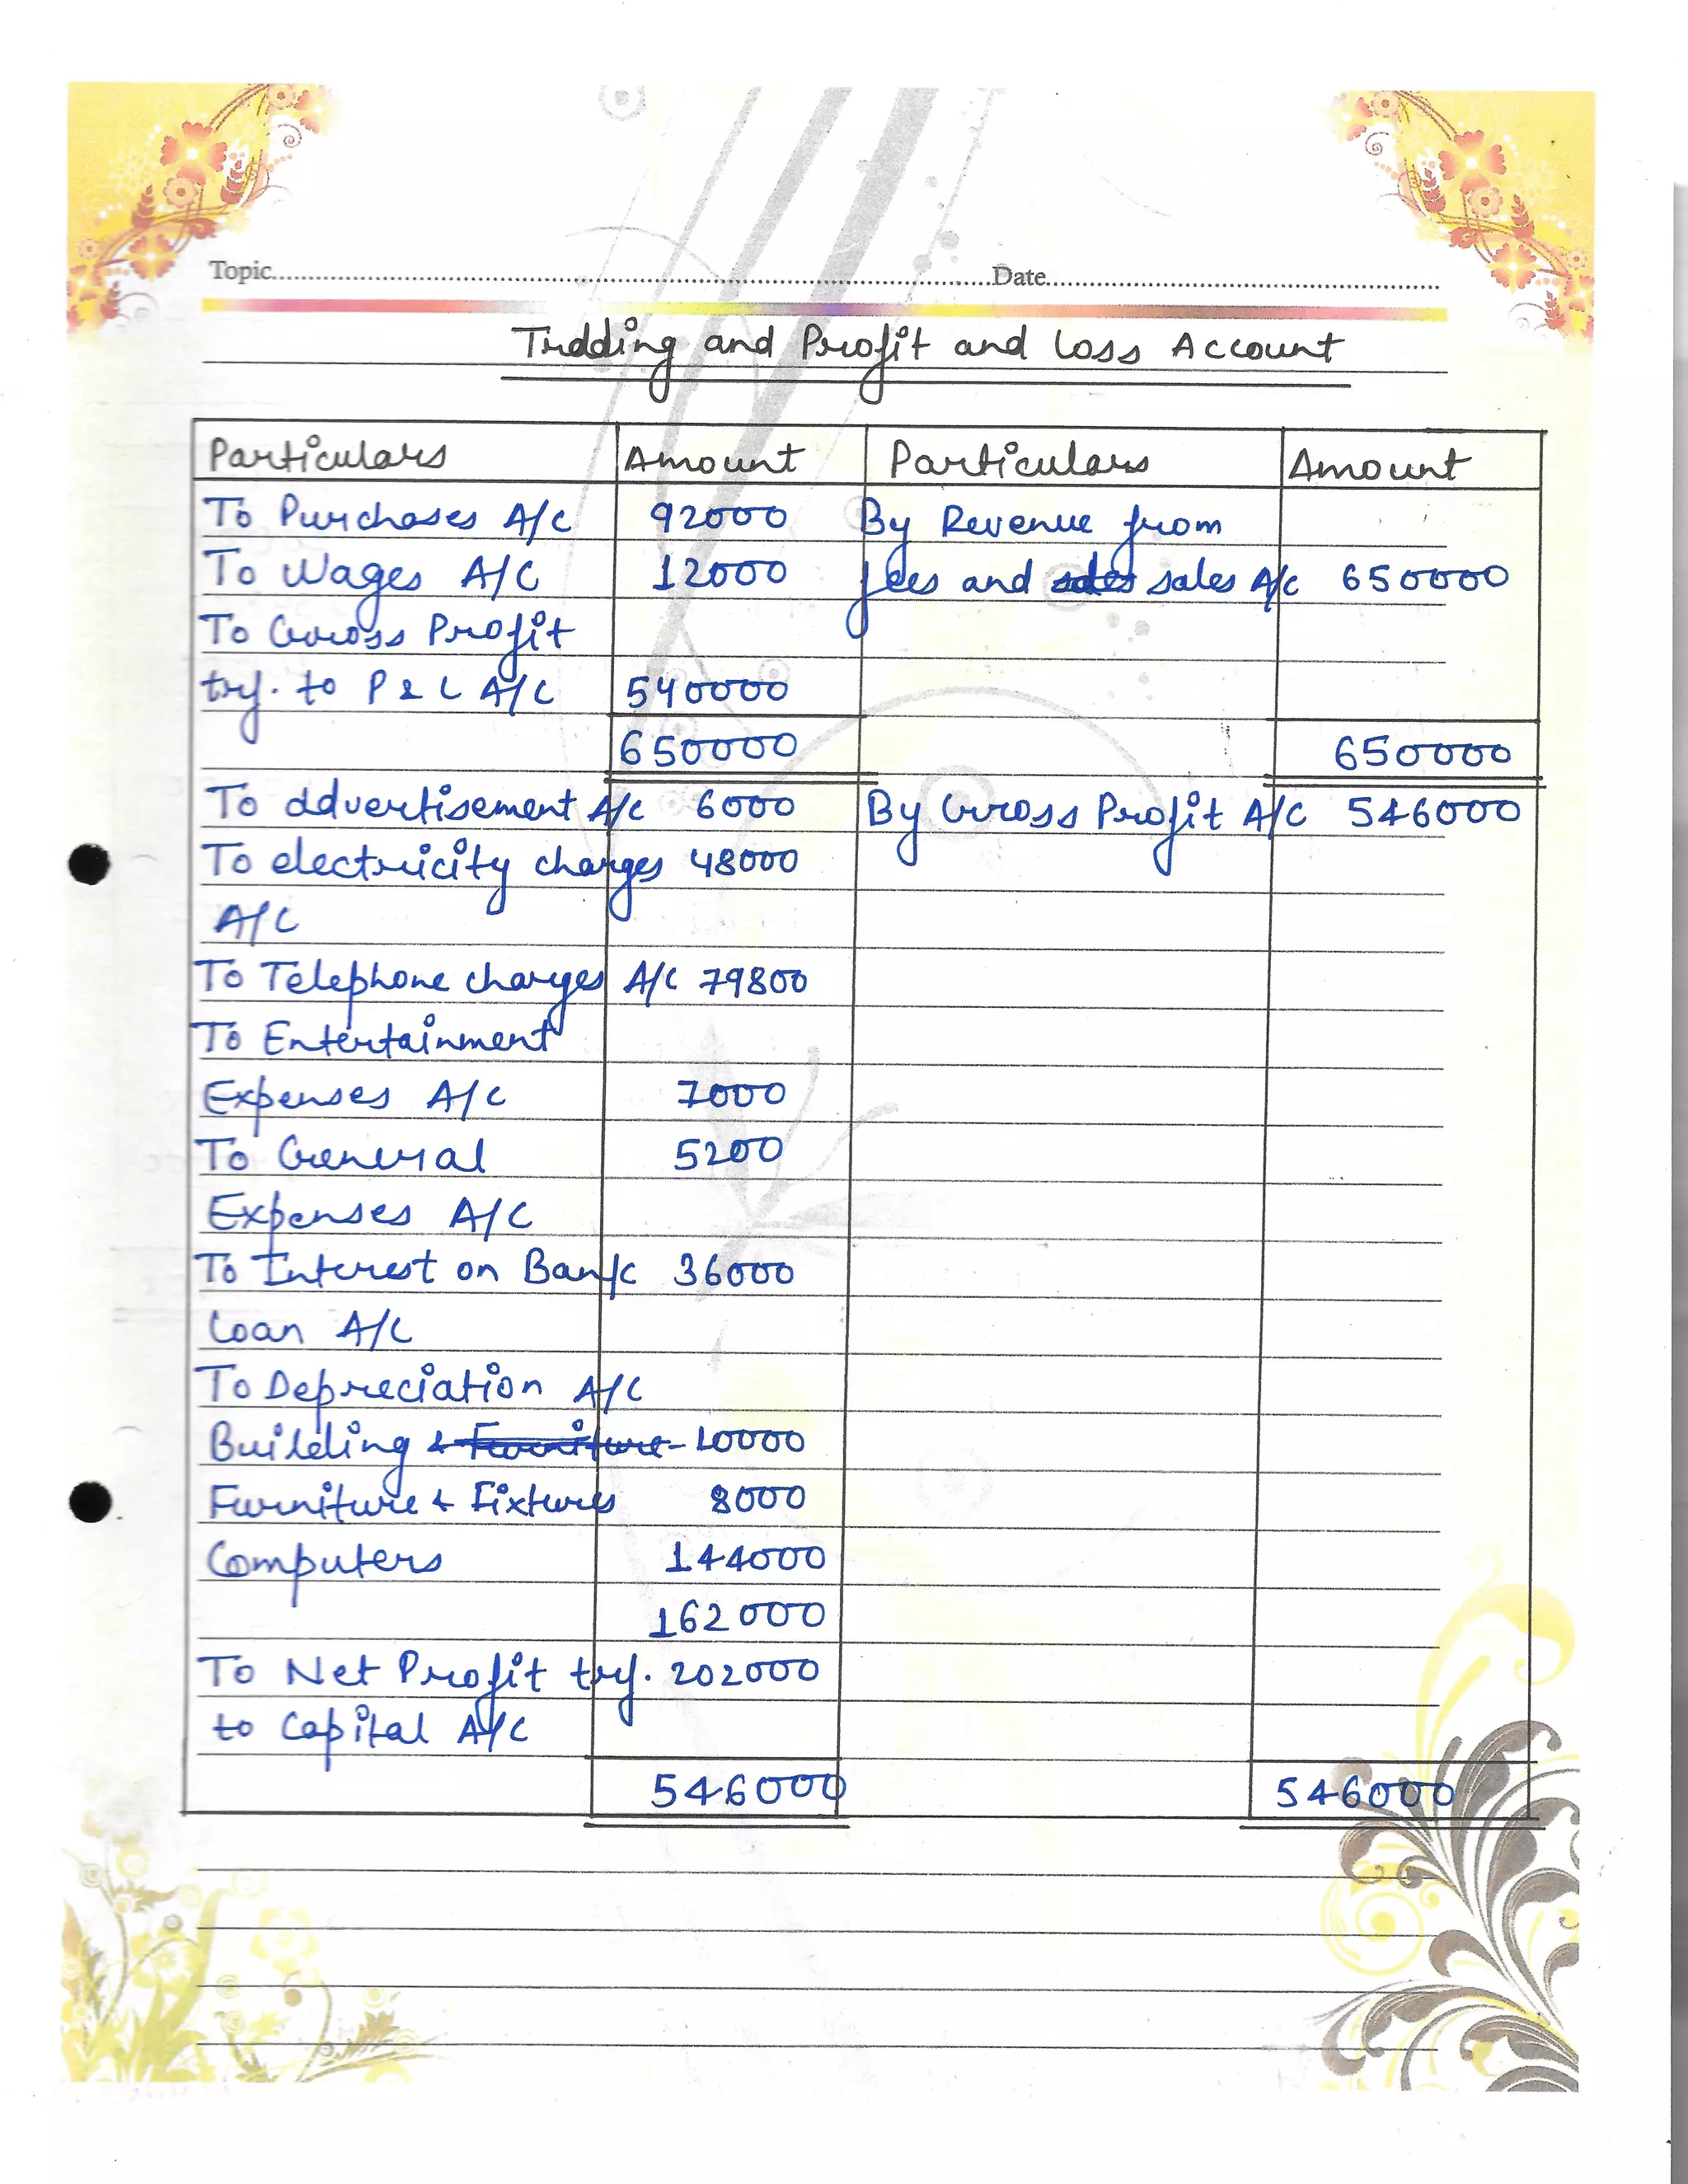 Topic.....Date.....
Trading and Profit and Loss Account
Particulars Amount Particulars Amount
To Purchases A/c 92000 By Revenue from
To Wages A/C 12000 fees and sales A/c 650000
To Gross Profit
trf. to P & L A/C 540000
650000 650000
To advertisement A/c 6000 By Gross Profit A/C 546000
To electricity charges 48000
A/C
To Telephone charges A/C 79800
To Entertainment
Expenses A/C 7000
To General 5200
Expenses A/C
To Interest on Bank 36000
Loan A/C
To Depreciation A/C
Building & Furniture 10000
Furniture & Fixtures 8000
Computers 144000
162000
To Net Profit trf. 202000
to Capital A/C
546000 546000